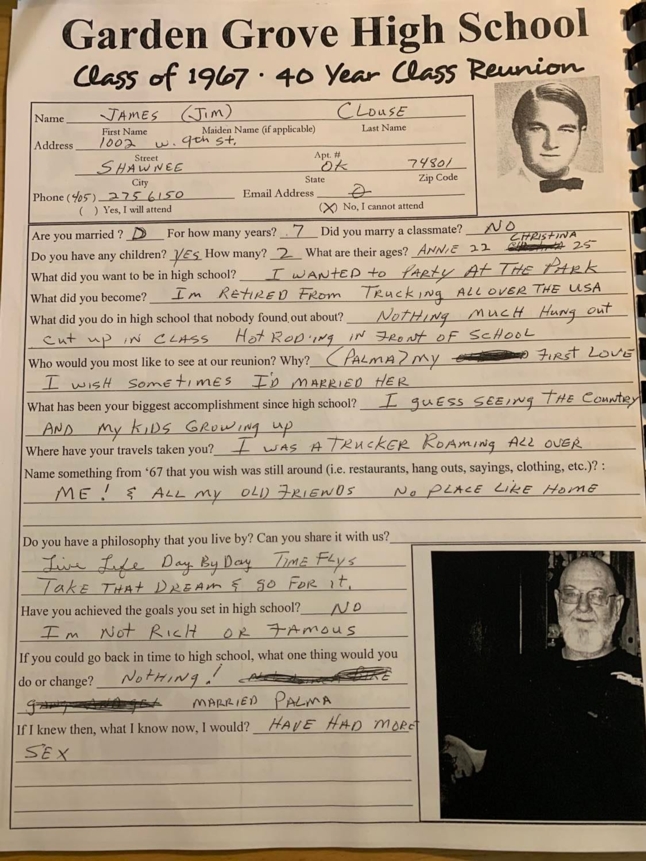 Garden Grove High School
Class of 1967 · 40 Year Class Reunion
Name JAMES (Jim) CLOUSE
First Name Maiden Name (if applicable) Last Name
Address 1002 W. 9th St.
Street Apt. #
SHAWNEE OK 74801
City State Zip Code
Phone (405) 275 6150 Email Address
( ) Yes, I will attend (X) No, I cannot attend
Are you married ? D For how many years? 7 Did you marry a classmate? NO
CHRISTINA
Do you have any children? YES How many? 2 What are their ages? ANNIE 22 25
What did you want to be in high school? I WANTED to PARTY AT THE PARK
What did you become? I'm RETIRED FROM TRUCKING ALL OVER THE USA
What did you do in high school that nobody found out about? NOTHING MUCH HUNG OUT
CUT UP IN CLASS HOT RODING IN FRONT OF SCHOOL
Who would you most like to see at our reunion? Why? (PALMA) MY FIRST LOVE
I WISH SOMETIMES I'D MARRIED HER
What has been your biggest accomplishment since high school? I GUESS SEEING THE COUNTRY
AND MY KIDS GROWING UP
Where have your travels taken you? I WAS A TRUCKER ROAMING ALL OVER
Name something from '67 that you wish was still around (i.e. restaurants, hang outs, sayings, clothing, etc.)? :
ME! & ALL MY OLD FRIENDS NO PLACE LIKE HOME
Do you have a philosophy that you live by? Can you share it with us?
Live Life Day By Day TIME FLYS
TAKE THAT DREAM & GO FOR IT.
Have you achieved the goals you set in high school? NO
I'm NOT RICH OR FAMOUS
If you could go back in time to high school, what one thing would you
do or change? NOTHING!
MARRIED PALMA
If I knew then, what I know now, I would? HAVE HAD MORE
SEX